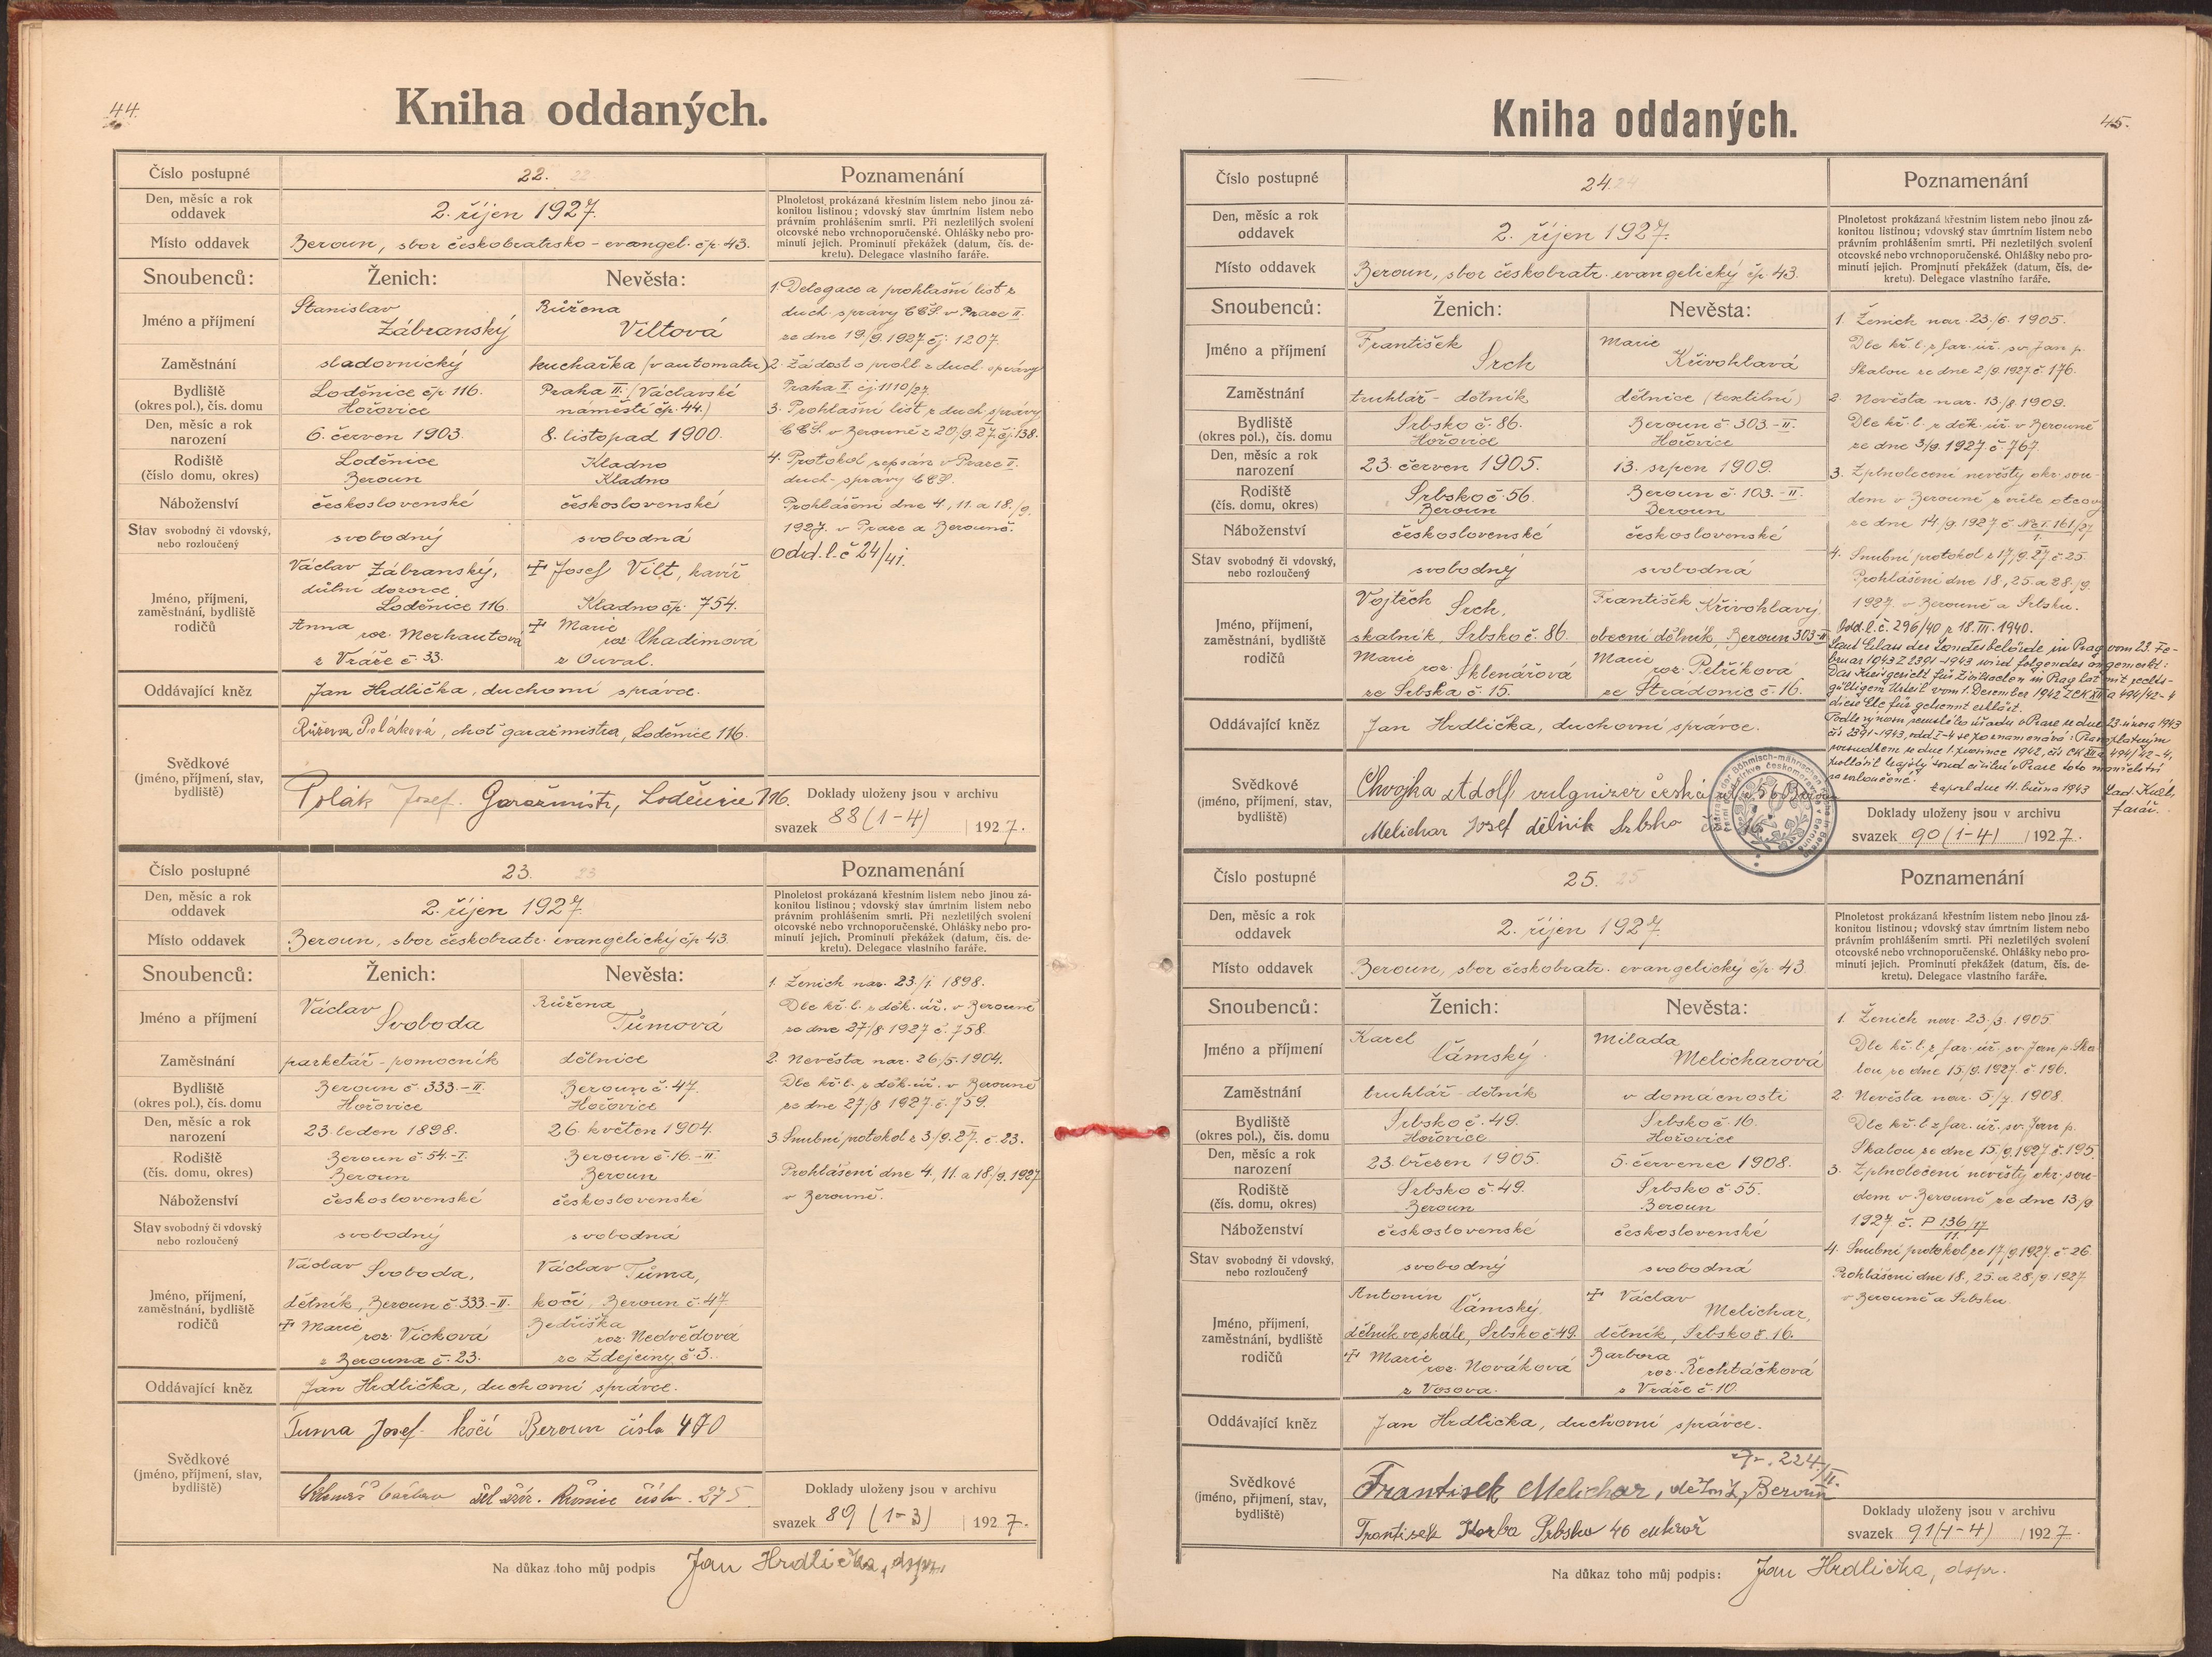 44.
Kniha oddaných.
Číslo postupné 22. 22.
Den, měsíc a rok oddavek 2. říjen 1927.
Místo oddavek Beroun, sbor českobratrsko-evangel. čp. 43.
Poznamenání
Plnoletost prokázaná křestním listem nebo jinou zá-
konitou listinou; vdovský stav úmrtním listem nebo
právním prohlášením smrti. Při nezletilých svolení
otcovské nebo vrchnoporučenské. Ohlášky nebo pro-
minutí jejich. Prominutí překážek (datum, čís. de-
kretu). Delegace vlastního faráře.
Snoubenců: Ženich: Nevěsta:
Jméno a příjmení
Stanislav Zábranský
Růžena Viltová
Zaměstnání sladovnický kuchařka (v automatu)
Bydliště (okres pol.), čís. domu
Loděnice čp 116. Hořovice
Praha II. (Václavské náměstí čp. 44.)
Den, měsíc a rok narození 6. červen 1903. 8. listopad 1900.
Rodiště (číslo domu, okres)
Loděnice Beroun
Kladno Kladno
Náboženství československé československé
Stav svobodný či vdovský, nebo rozloučený svobodný svobodná
Jméno, příjmení, zaměstnání, bydliště rodičů
Václav Zábranský,
důlní dozorce
Loděnice 116.
Anna roz. Merhautová
z Vráže č. 33.
✝ Josef Vilt, havíř
Kladno čp. 754.
✝ Marie
roz. Chadimová
z Ouval.
Oddávající kněz Jan Hrdlička, duchovní správce.
Svědkové (jméno, příjmení, stav, bydliště)
Růžena Poláková, choť garažmistra, Loděnice 116.
Polák Josef. Garažmistr, Loděnice 116.
1. Delegace a prohlašní list z
duch. správy CČS. v Praze II.
ze dne 19/9. 1927 čj. 1207.
2. Žádost o prohl. z duch. správy
Praha II. čj. 1110/27.
3. Prohlašní list z duch. správy
CČS. v Berouně z 20/9. 27. čj. 138.
4. Protokol sepsán v Praze II.
duch. správy CČS.
Prohlášení dne 4., 11. a 18./9.
1927. v Praze a Berouně.
Odd. l. č 24/41.
Doklady uloženy jsou v archivu
svazek 88 (1-4) 1927.
Číslo postupné 23. 23
Den, měsíc a rok oddavek 2. říjen 1927
Místo oddavek Beroun, sbor českobratr. evangelický čp 43.
Poznamenání
Plnoletost prokázaná křestním listem nebo jinou zá-
konitou listinou; vdovský stav úmrtním listem nebo
právním prohlášením smrti. Při nezletilých svolení
otcovské nebo vrchnoporučenské. Ohlášky nebo pro-
minutí jejich. Prominutí překážek (datum, čís. de-
kretu). Delegace vlastního faráře.
Snoubenců: Ženich: Nevěsta:
Jméno a příjmení
Václav Svoboda
Růžena Tůmová
Zaměstnání parketář-pomocník dělnice
Bydliště (okres pol.), čís. domu
Beroun č. 333.-II. Hořovice
Beroun č. 47. Hořovice
Den, měsíc a rok narození 23. leden 1898. 26. květen 1904.
Rodiště (čís. domu, okres)
Beroun č. 54.-I. Beroun
Beroun č. 16.-II. Beroun
Náboženství československé československé
Stav svobodný či vdovský nebo rozloučený svobodný svobodná
Jméno, příjmení, zaměstnání, bydliště rodičů
Václav Svoboda,
dělník, Beroun č. 333.-II.
✝ Marie roz. Vicková
z Berouna č. 23.
Václav Tůma,
kočí, Beroun č. 47
Bedřiška
roz. Nedvědová
ze Zdejciny č. 3.
Oddávající kněz Jan Hrdlička, duchovní správce.
Svědkové (jméno, příjmení, stav, bydliště)
Tuma Josef. kočí Beroun číslo 470
1. Ženich nar. 23./1. 1898.
Dle kř. l. z děk. úř. v Berouně
ze dne 27/8 1927 č. 758.
2. Nevěsta nar. 26/5. 1904.
Dle kř. l. z děk. úř. v Berouně
ze dne 27/8 1927. č. 759.
3. Snubní protokol z 3/9. 27. č. 23.
Prohlášení dne 4., 11. a 18./9. 1927
v Berouně.
Doklady uloženy jsou v archivu
svazek 89 (1-3) 1927.
Na důkaz toho můj podpis Jan Hrdlička, dspr.
45.
Kniha oddaných.
Číslo postupné 24. 24
Den, měsíc a rok oddavek 2. říjen 1927.
Místo oddavek Beroun, sbor českobratr. evangelický čp. 43.
Poznamenání
Plnoletost prokázaná křestním listem nebo jinou zá-
konitou listinou; vdovský stav úmrtním listem nebo
právním prohlášením smrti. Při nezletilých svolení
otcovské nebo vrchnoporučenské. Ohlášky nebo pro-
minutí jejich. Prominutí překážek (datum, čís. de-
kretu). Delegace vlastního faráře.
Snoubenců: Ženich: Nevěsta:
Jméno a příjmení
František Srch
Marie Křivohlavá
Zaměstnání truhlář-dělník dělnice (textilní)
Bydliště (okres pol.), čís. domu
Srbsko č. 86. Hořovice
Beroun č. 303.-II. Hořovice
Den, měsíc a rok narození 23. červen 1905. 13. srpen 1909.
Rodiště (čís. domu, okres)
Srbsko č 56. Beroun
Beroun č. 103.-II. Beroun
Náboženství československé československé
Stav svobodný či vdovský, nebo rozloučený svobodný svobodná
Jméno, příjmení, zaměstnání, bydliště rodičů
Vojtěch Srch,
skalník, Srbsko č. 86.
Marie
roz. Sklenářová
ze Srbska č. 15.
František Křivohlavý
obecní dělník, Beroun 303-II
Marie
roz. Petříková
ze Stradonic č. 16.
Oddávající kněz Jan Hrdlička, duchovní správce.
Svědkové (jméno, příjmení, stav, bydliště)
Chvojka Adolf vulgnizer česká 56 Beroun
Melichar Josef dělník Srbsko č. 16
1. Ženich nar. 23./6. 1905.
Dle kř. l. z far. úř. sv. Jan p.
Skalou ze dne 2/9. 1927. č. 176.
2. Nevěsta nar. 13./8. 1909.
Dle kř. l. z děk. úř. v Berouně
ze dne 3/9. 1927. č. 767.
3. Zplnoletnění nevěsty okr. sou-
dem v Berouně z vůle otcovy
ze dne 14/9. 1927 č. Nc I. 161/27 1.
4. Snubní protokol z 17/9. 27. č. 25.
Prohlášení dne 18., 25. a 28./9.
1927. v Berouně a Srbsku.
Odd. l. č. 296/40 z 18. III. 1940.
Laut Erlass der Landesbehörde in Prag vom 23. Fe-
bruar 1943 Z 2391-1943 wird folgendes angemerkt:
Das Kreisgericht für Zivilsachen in Prag hat mit rechts-
gültigem Urteil vom 1. Dezember 1942 Z CK XII a 494/42-4
diese Ehe für getrennt erklärt.
Podle výnosu zemského úřadu v Praze ze dne 23. února 1943
čís 2391-1943, odd I-4 se poznamenává: Pravoplatným
rozsudkem ze dne 1. prosince 1942, čís CK XII a 494/42-4,
prohlásil krajský soud civilní v Praze toto manželství
za rozloučené.
Zapsal dne 11. března 1943
farář
Doklady uloženy jsou v archivu
svazek 90 (1-4) 1927.
Číslo postupné 25. 25
Den, měsíc a rok oddavek 2. říjen 1927.
Místo oddavek Beroun, sbor českobratr. evangelický čp. 43.
Poznamenání
Plnoletost prokázaná křestním listem nebo jinou zá-
konitou listinou; vdovský stav úmrtním listem nebo
právním prohlášením smrti. Při nezletilých svolení
otcovské nebo vrchnoporučenské. Ohlášky nebo pro-
minutí jejich. Prominutí překážek (datum, čís. de-
kretu). Delegace vlastního faráře.
Snoubenců: Ženich: Nevěsta:
Jméno a příjmení
Karel Čámský.
Milada Melicharová
Zaměstnání truhlář-dělník v domácnosti
Bydliště (okres pol.), čís. domu
Srbsko č. 49. Hořovice
Srbsko č. 16. Hořovice
Den, měsíc a rok narození 23. březen 1905. 5. červenec 1908.
Rodiště (čís. domu, okres)
Srbsko č. 49. Beroun
Srbsko č 55. Beroun
Náboženství československé československé
Stav svobodný či vdovský, nebo rozloučený svobodný svobodná
Jméno, příjmení, zaměstnání, bydliště rodičů
Antonín Čámský,
dělník ve skále, Srbsko č 49.
✝ Marie roz. Nováková
z Vosova.
✝ Václav Melichar,
dělník, Srbsko č. 16.
Barbora
roz. Rechtáčková
z Vráže č. 10.
Oddávající kněz Jan Hrdlička, duchovní správce.
Svědkové (jméno, příjmení, stav, bydliště)
224./II.
František Melichar, dělník, Beroun
František Horba Srbsko 40 cukrář
1. Ženich nar. 23./3. 1905.
Dle kř. l. z far. úř. sv. Jan p. Ska-
lou ze dne 15./9. 1927. č. 196.
2. Nevěsta nar. 5./7. 1908.
Dle kř. l. z far. úř. sv. Jan p.
Skalou ze dne 15./9. 1927. č. 195.
3. Zplnoletnění nevěsty okr. sou-
dem v Berouně ze dne 13/9.
1927 č. P 136/17 11.
4. Snubní protokol ze 17/9. 1927. č. 26.
Prohlášení dne 18., 25. a 28./9. 1927.
v Berouně a Srbsku.
Doklady uloženy jsou v archivu
svazek 91 (1-4) 1927.
Na důkaz toho můj podpis: Jan Hrdlička, dspr.